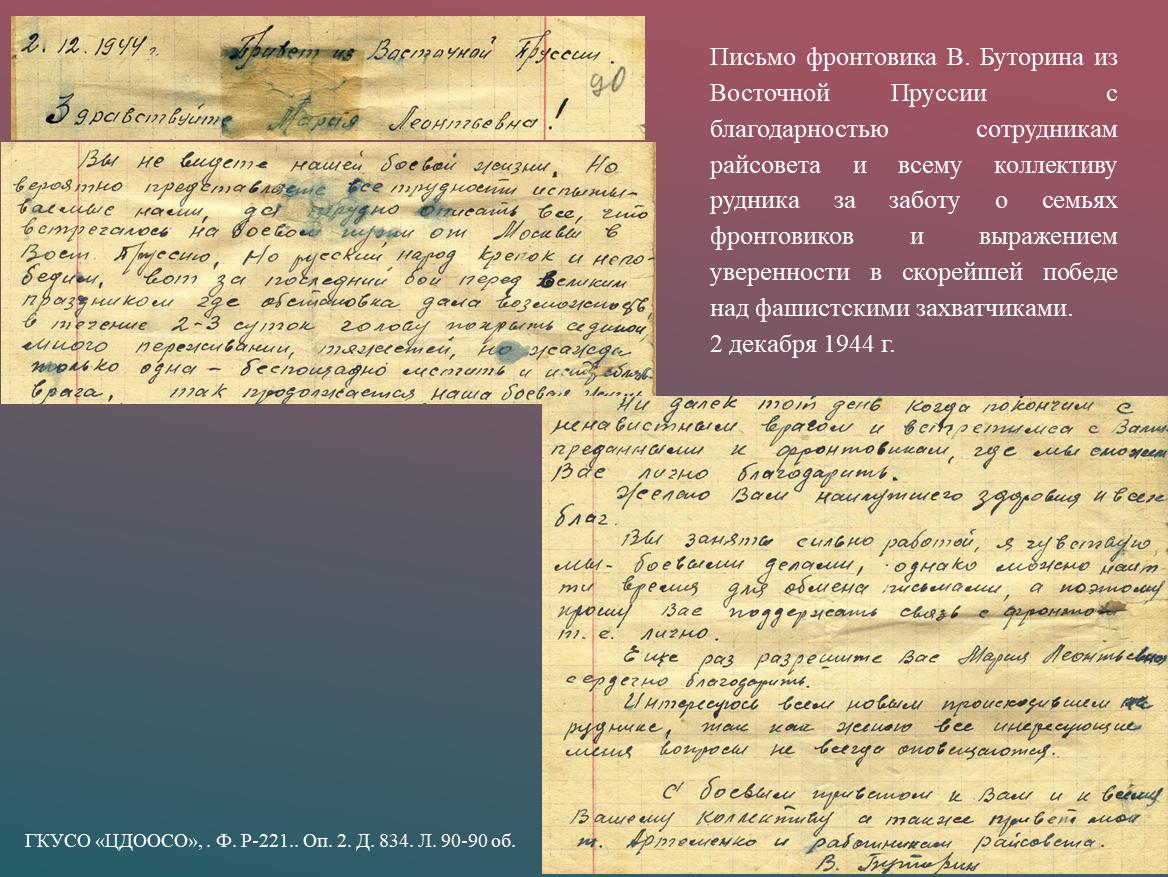 2. 12. 1944 г. Привет из Восточной Пруссии.
90
Здравствуйте Мария Леонтьевна!
Вы не видете нашей боевой жизни. Но
вероятно представляете все трудности испыты-
ваемые нами, да трудно описать все, что
встречалось на боевом пути от Москвы в
Вост. Пруссию, Но русский народ крепок и непо-
бедим, вот за последний бой перед великим
праздником где обстановка дала возможность,
в течение 2-3 суток голову покрыть сединой,
много переживаний, тяжестей, но жажда
только одна – беспощадно мстить и истреблять
врага, так продолжается наша боевая жизнь
Письмо фронтовика В. Буторина из
Восточной Пруссии с
благодарностью сотрудникам
райсовета и всему коллективу
рудника за заботу о семьях
фронтовиков и выражением
уверенности в скорейшей победе
над фашистскими захватчиками.
2 декабря 1944 г.
Ни далек тот день когда покончим с
ненавистным врагом и встретимса с Вами
преданными к фронтовикам, где мы сможем
Вас лично благодарить.
Желаю Вам наилутшего здоровия и всех
благ.
Вы заняты сильно работой, я чувствую,
мы - боевыми делами, однако можно найт-
ти время для обмена письмами, а поэтому
прошу Вас поддержать связь с фронтом
т. е. лично.
Еще раз разрешите Вас Мария Леонтьевна
сердечно благодарить.
Интересуюсь всем новым происходившем на
руднике, так как женою все инересующие
меня вопросы не всегда оповещаются.
С боевым приветом к Вам и к всему
Вашему коллективу а также привет мой
т. Артеменко и работникам райсовета.
В. Буторин
ГКУСО «ЦДООСО», . Ф. Р-221.. Оп. 2. Д. 834. Л. 90-90 об.